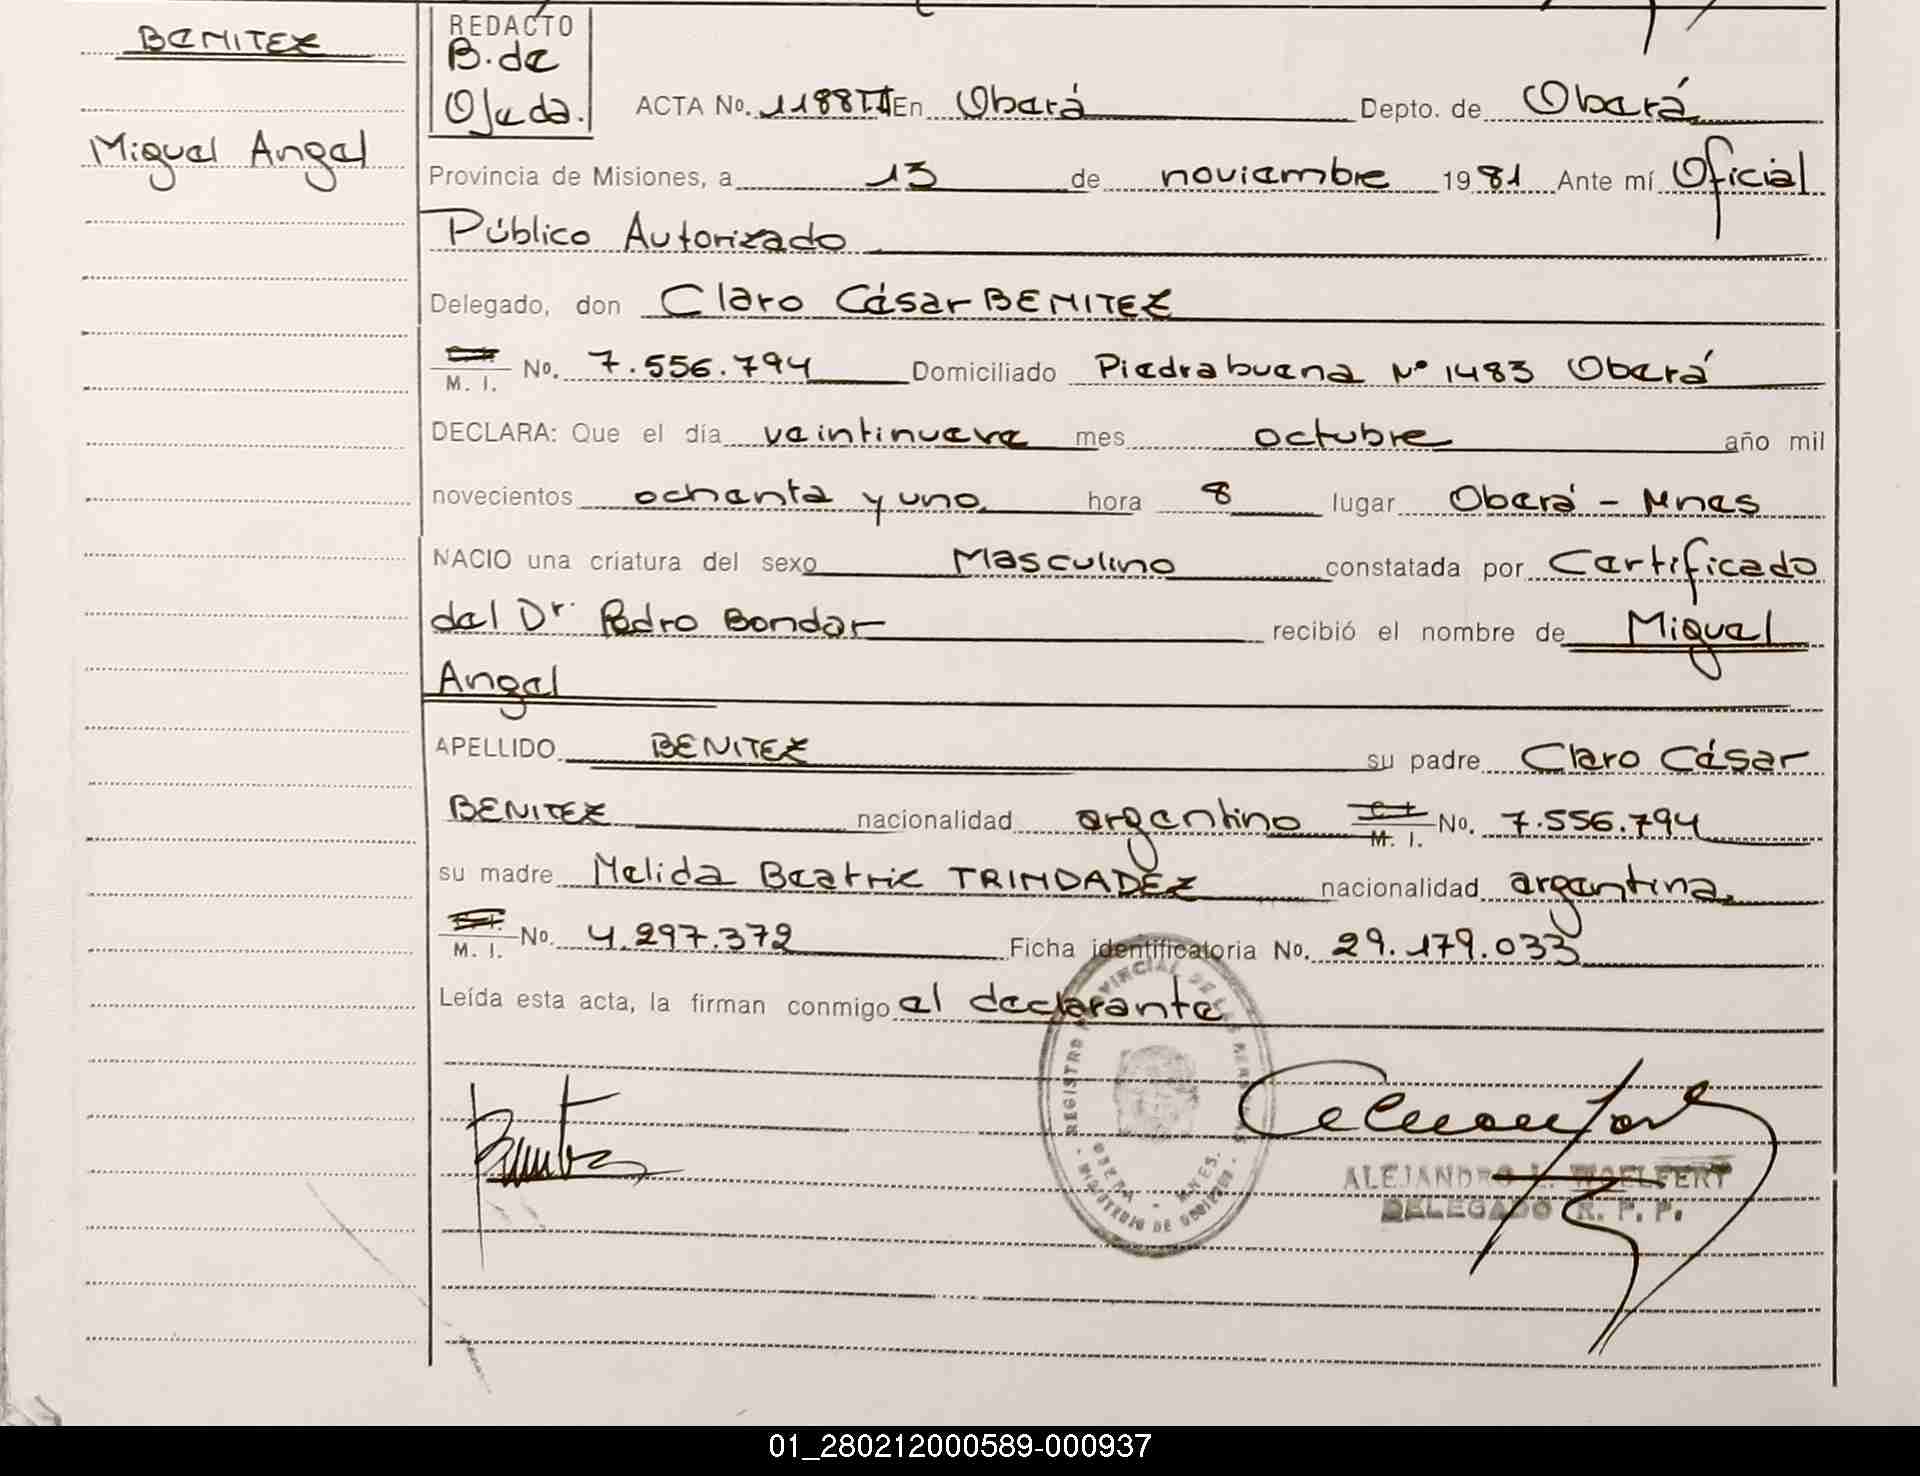 BENITEZ
Miguel Angel
REDACTO
B. de
Ojeda.
ACTA No. 1188TI En Oberá Depto. de Oberá
Provincia de Misiones, a 13 de noviembre 1981 Ante mí Oficial
Público Autorizado
Delegado, don Claro César BENITEZ
M. I. No. 7.556.794 Domiciliado Piedrabuena Nº 1483 Oberá
DECLARA: Que el día veintinueve mes octubre año mil
novecientos ochenta y uno hora 8 lugar Oberá - Mnes
NACIO una criatura del sexo Masculino constatada por Certificado
del Dr. Pedro Bondar recibió el nombre de Miguel
Angel
APELLIDO BENITEZ su padre Claro César
BENITEZ nacionalidad argentino M. I. No. 7.556.794
su madre Nelida Beatriz TRINDADEZ nacionalidad argentina
M. I. No. 4.297.372 Ficha identificatoria No. 29.179.033
Leída esta acta, la firman conmigo el declarante
REGISTRO PROVINCIAL DE LAS PERSONAS
OBERA - MNES.
MINISTERIO DE GOBIERNO
ALEJANDRO L. WOELFERT
DELEGADO R. P. P.
01_280212000589-000937